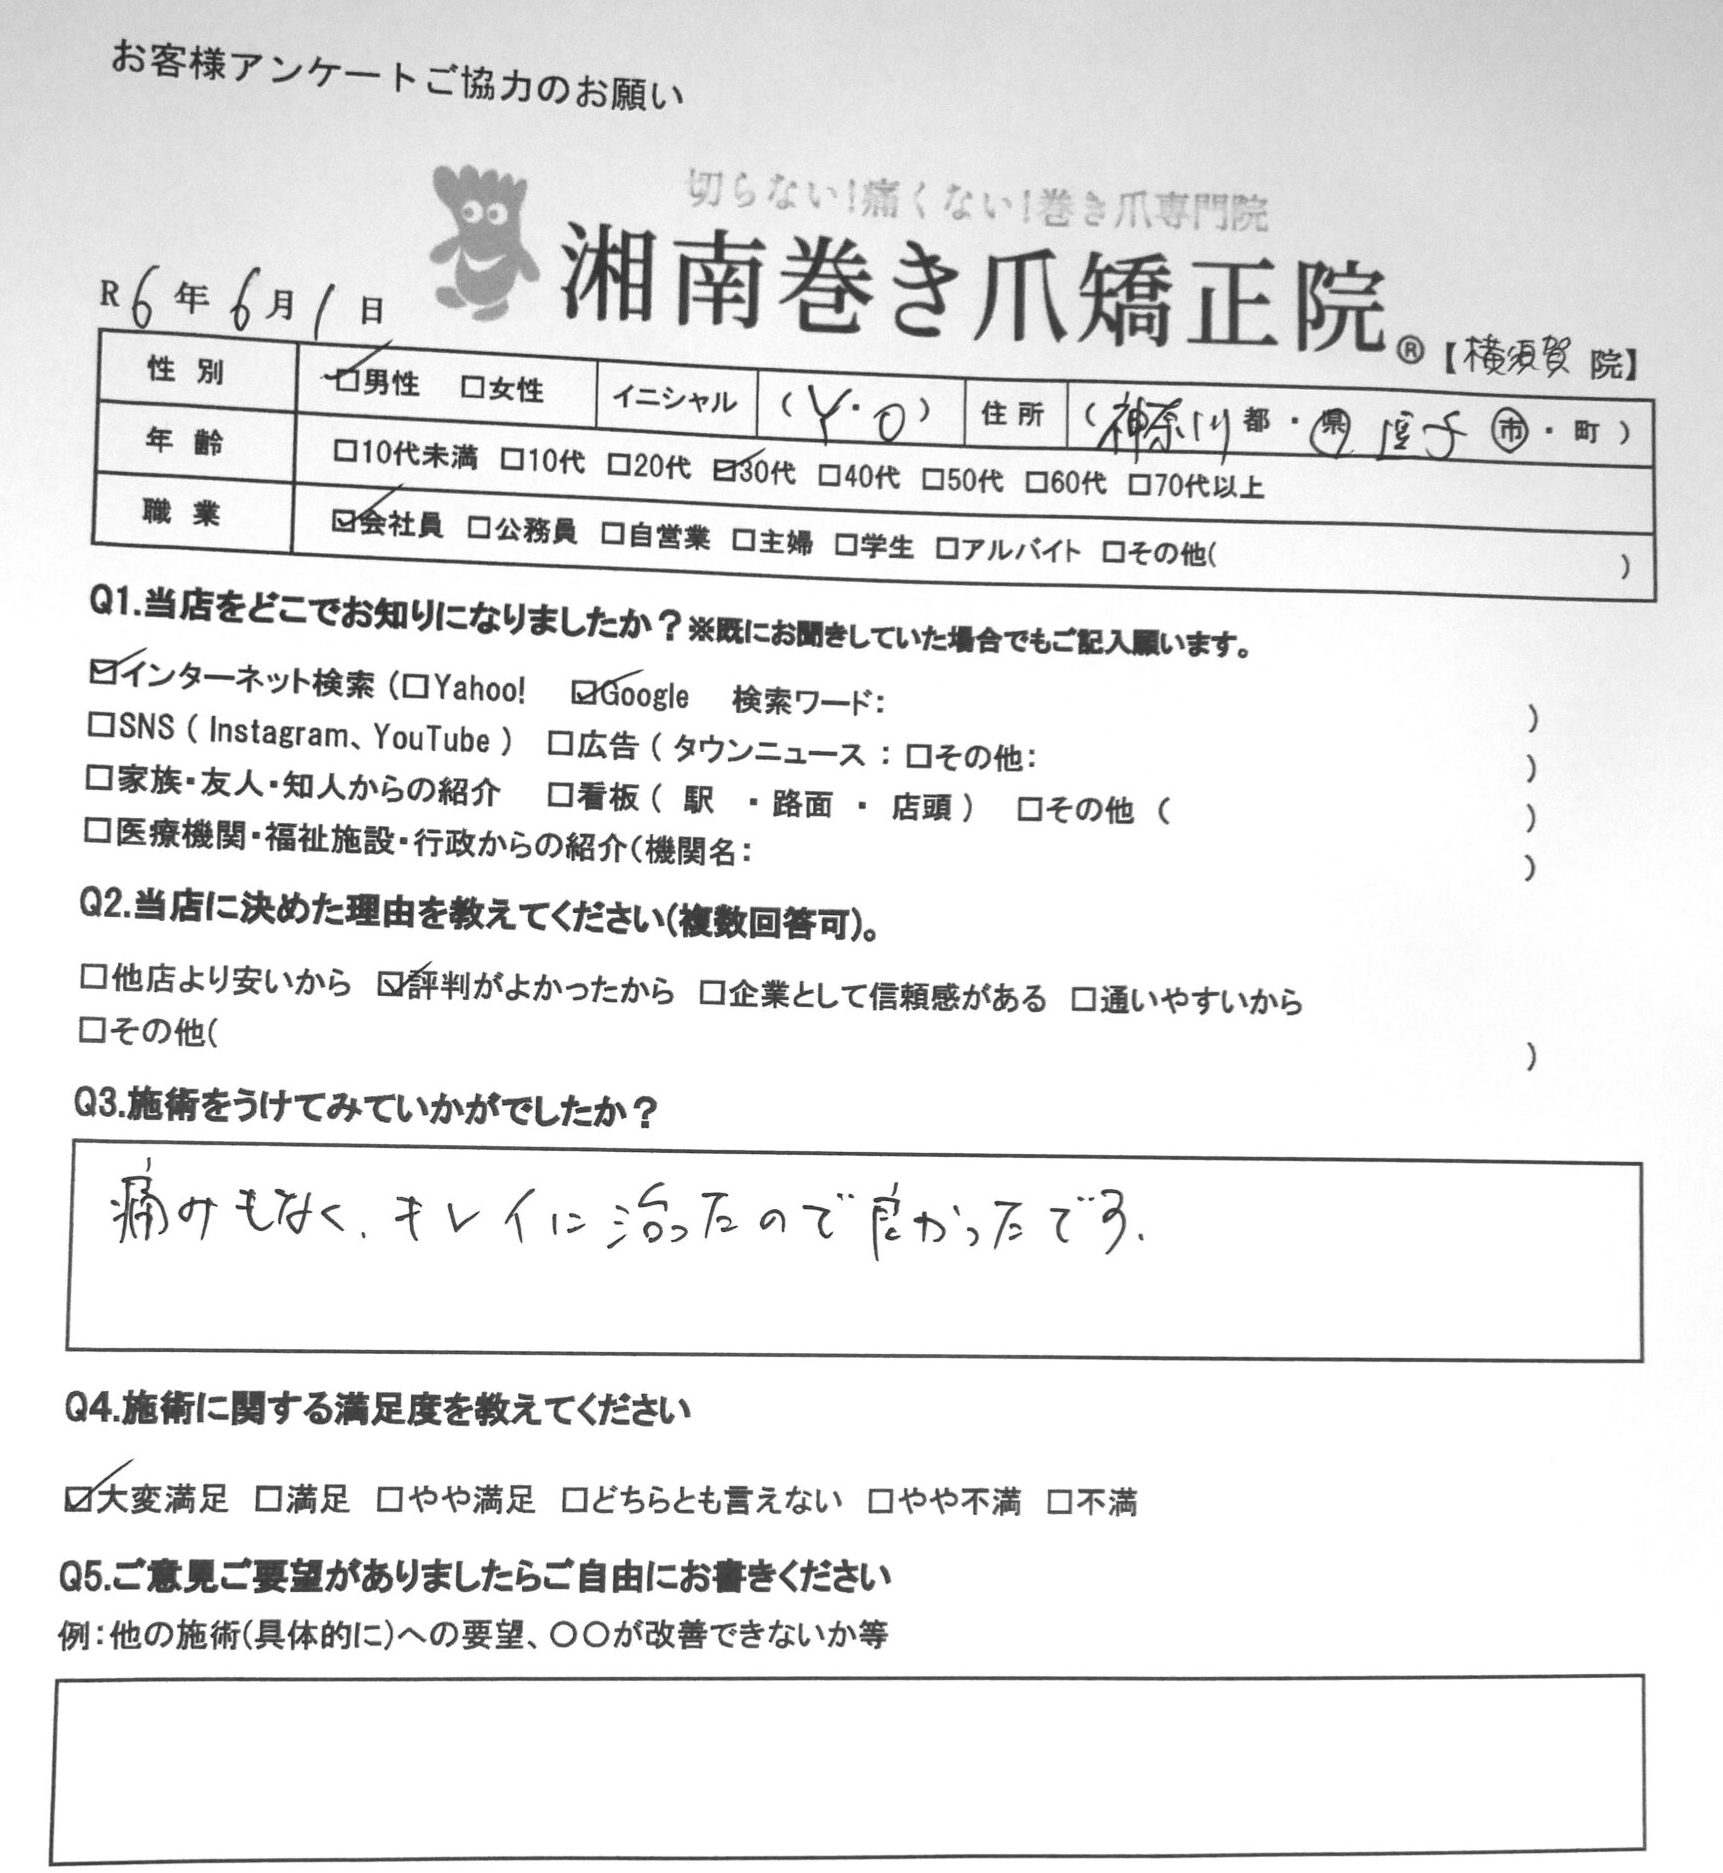 お客様アンケートご協力のお願い
切らない!痛くない!巻き爪専門院
湘南巻き爪矯正院® 【横須賀 院】
R6年6月1日
性別 ☑男性 □女性 イニシャル (Y・O) 住所 (神奈川 都・県 逗子 市・町)
年齢 □10代未満 □10代 □20代 ☑30代 □40代 □50代 □60代 □70代以上
職業 ☑会社員 □公務員 □自営業 □主婦 □学生 □アルバイト □その他( )
Q1.当店をどこでお知りになりましたか？※既にお聞きしていた場合でもご記入願います。
☑インターネット検索 (□Yahoo! ☑Google 検索ワード: )
□SNS ( Instagram、YouTube ) □広告 ( タウンニュース : □その他: )
□家族・友人・知人からの紹介 □看板 ( 駅 ・ 路面 ・ 店頭 ) □その他 ( )
□医療機関・福祉施設・行政からの紹介(機関名: )
Q2.当店に決めた理由を教えてください(複数回答可)。
□他店より安いから ☑評判がよかったから □企業として信頼感がある □通いやすいから
□その他( )
Q3.施術をうけてみていかがでしたか？
痛みもなく、キレイに治ったので良かったです.
Q4.施術に関する満足度を教えてください
☑大変満足 □満足 □やや満足 □どちらとも言えない □やや不満 □不満
Q5.ご意見ご要望がありましたらご自由にお書きください
例:他の施術(具体的に)への要望、〇〇が改善できないか等